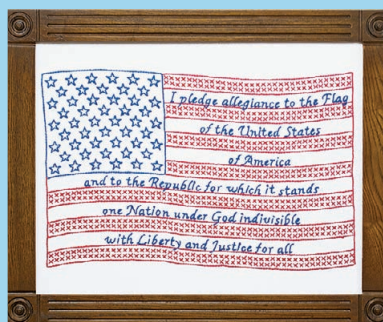 I pledge allegiance to the Flag
of the United States
of America
and to the Republic for which it stands
one Nation under God indivisible
with Liberty and Justice for all